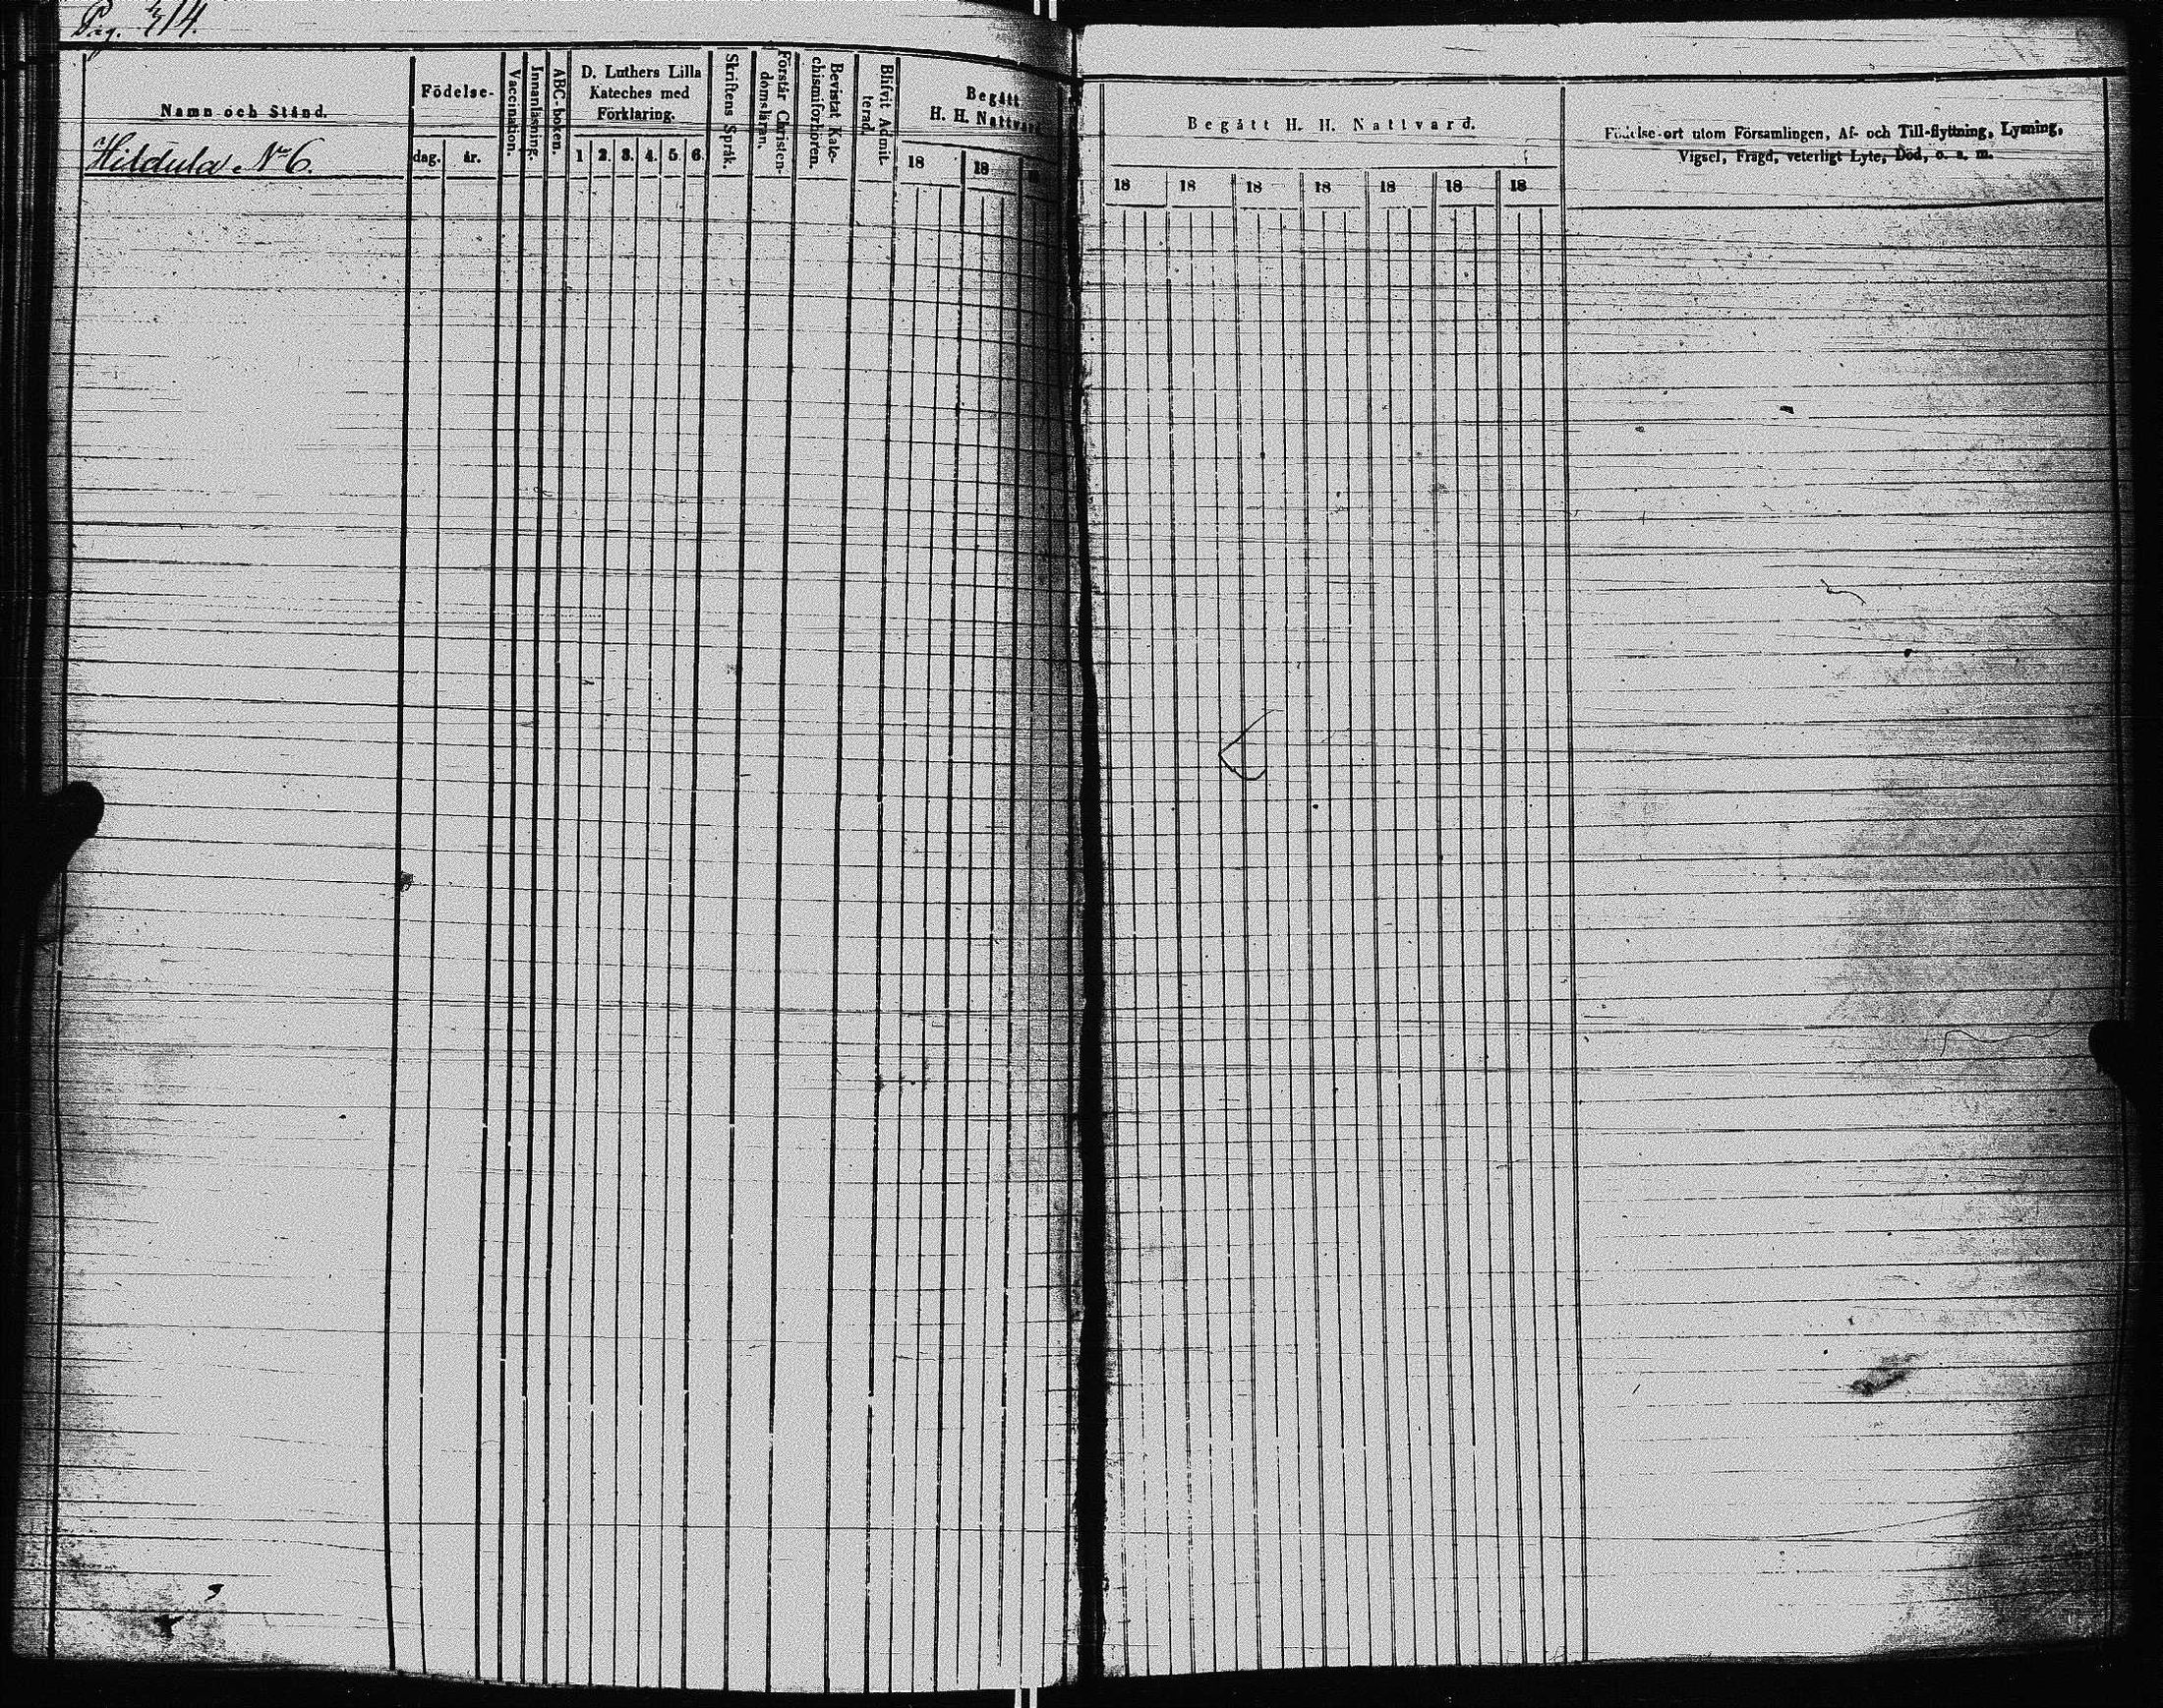 Pag. 314.
Namn och Stånd.
Hildula No 6.
Födelse-
dag.
år.
Vaccination.
Innanläsning.
ABC-boken.
D. Luthers Lilla
Kateches med
Förklaring.
1 2. 3. 4. 5. 6.
Skriftens Språk.
Förstår Christen-
domsläran.
Bevistat Kate-
chismiförhören.
Blifvit Admit-
terad.
Begått
H. H. Nattvard
18 18
Begått H. H. Nattvard.
18 18 18 18 18 18 18
Födelse-ort utom Församlingen, Af- och Till-flyttning, Lysning,
Vigsel, Frägd, veterligt Lyte, Död, o. s. m.